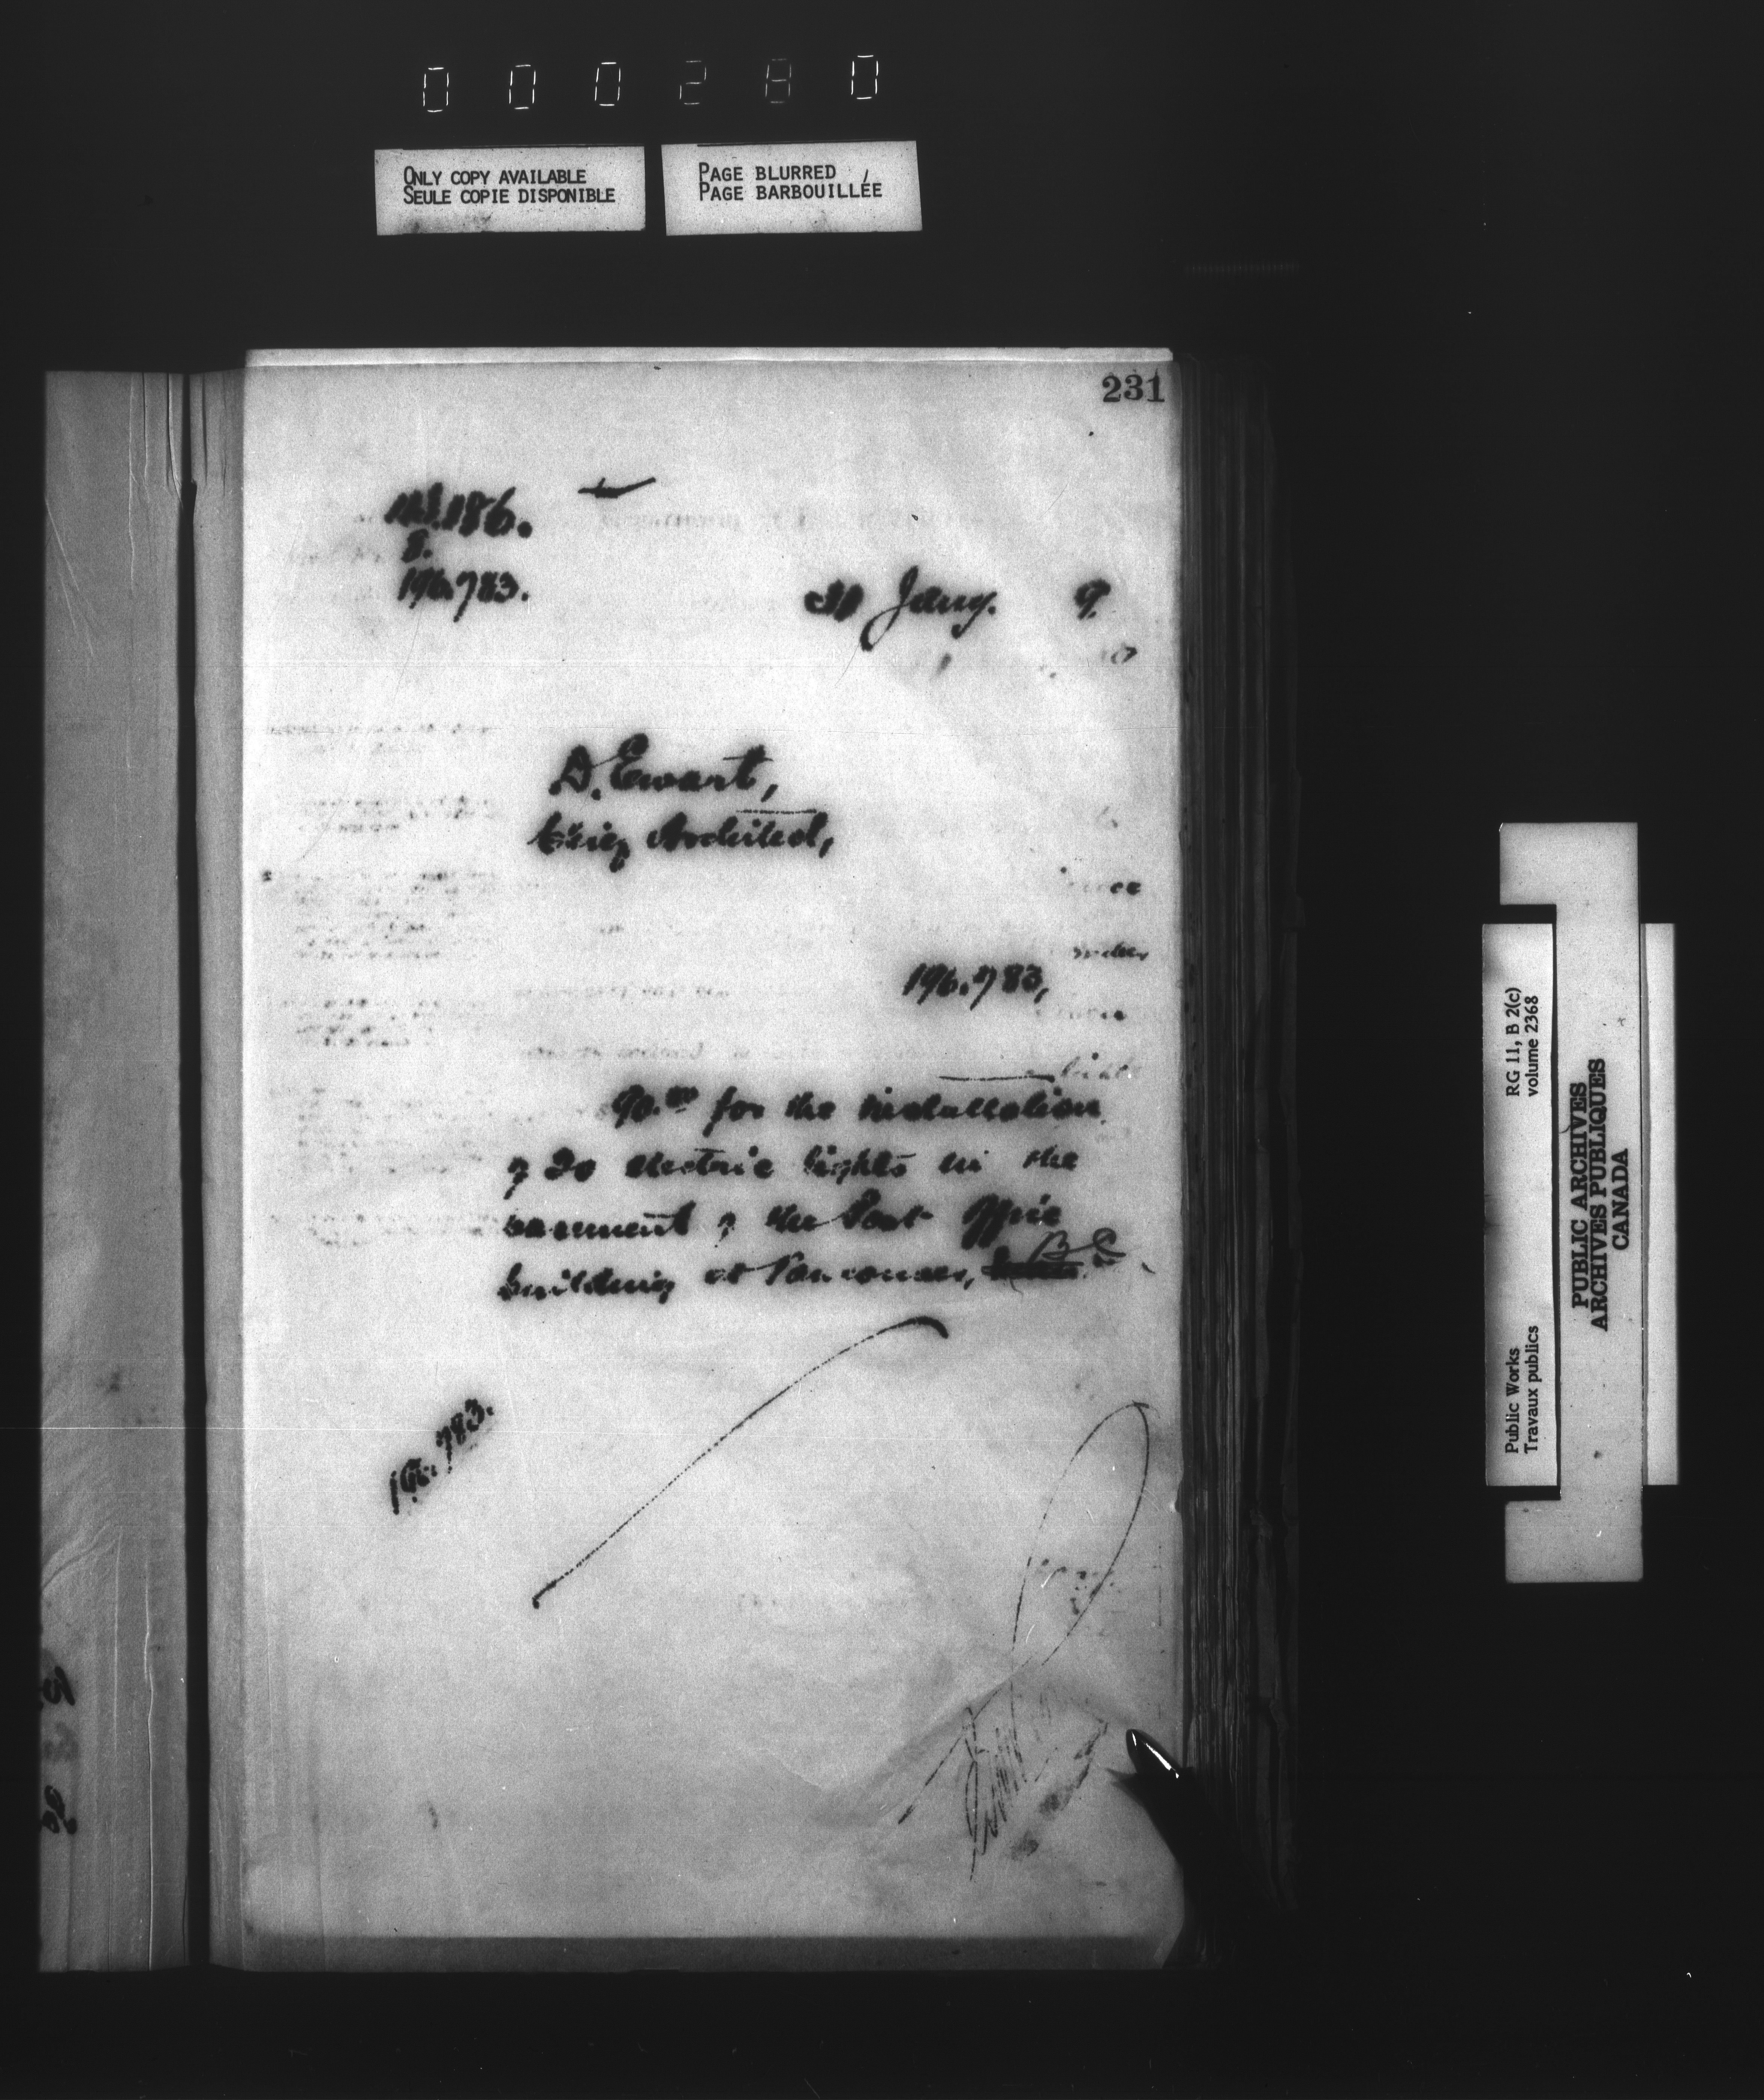 000280
ONLY COPY AVAILABLE
SEULE COPIE DISPONIBLE
PAGE BLURRED
PAGE BARBOUILLÉE
231
186.
8.
196.783.
Jany. 9
D. Ewart,
Chief Architect,
196.783,
90.00 for the installation
of 20 electric lights in the
basement of the Post Office
building at Vancouver, B C.
196.783.
RG 11, B 2(c)
volume 2368
Public Works
Travaux publics
PUBLIC ARCHIVES
ARCHIVES PUBLIQUES
CANADA